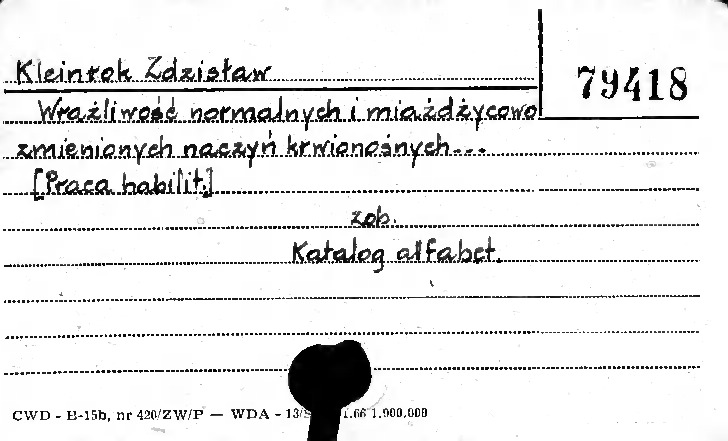 Kleinrok Zdzisław
79418
Wrażliwość normalnych i miażdżycowo
zmienionych naczyń krwionośnych...
[Praca habilit.]
zob.
Katalog alfabet.
CWD - B-15b, nr 420/ZW/P — WDA - 13/ 1.66 1.000.000